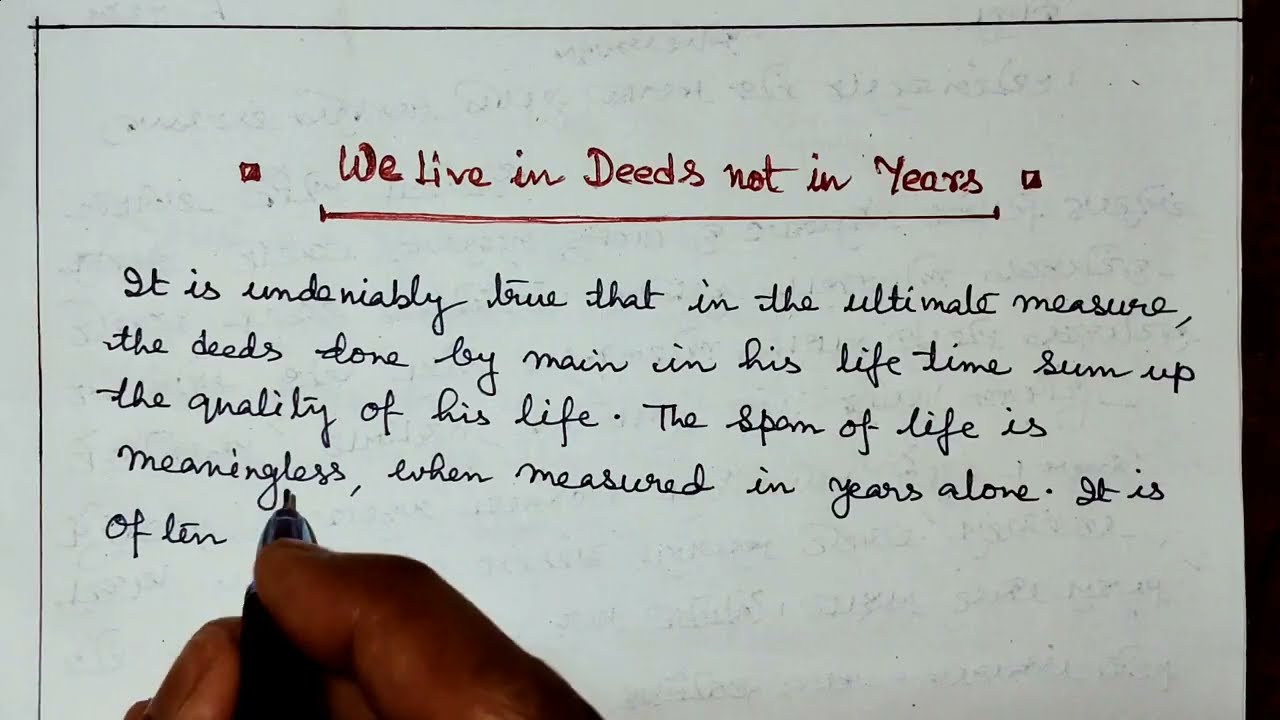 We Live in Deeds not in Years
It is undeniably true that in the ultimate measure,
the deeds done by main in his life time sum up
the quality of his life. The span of life is
meaningless, when measured in years alone. It is
Often